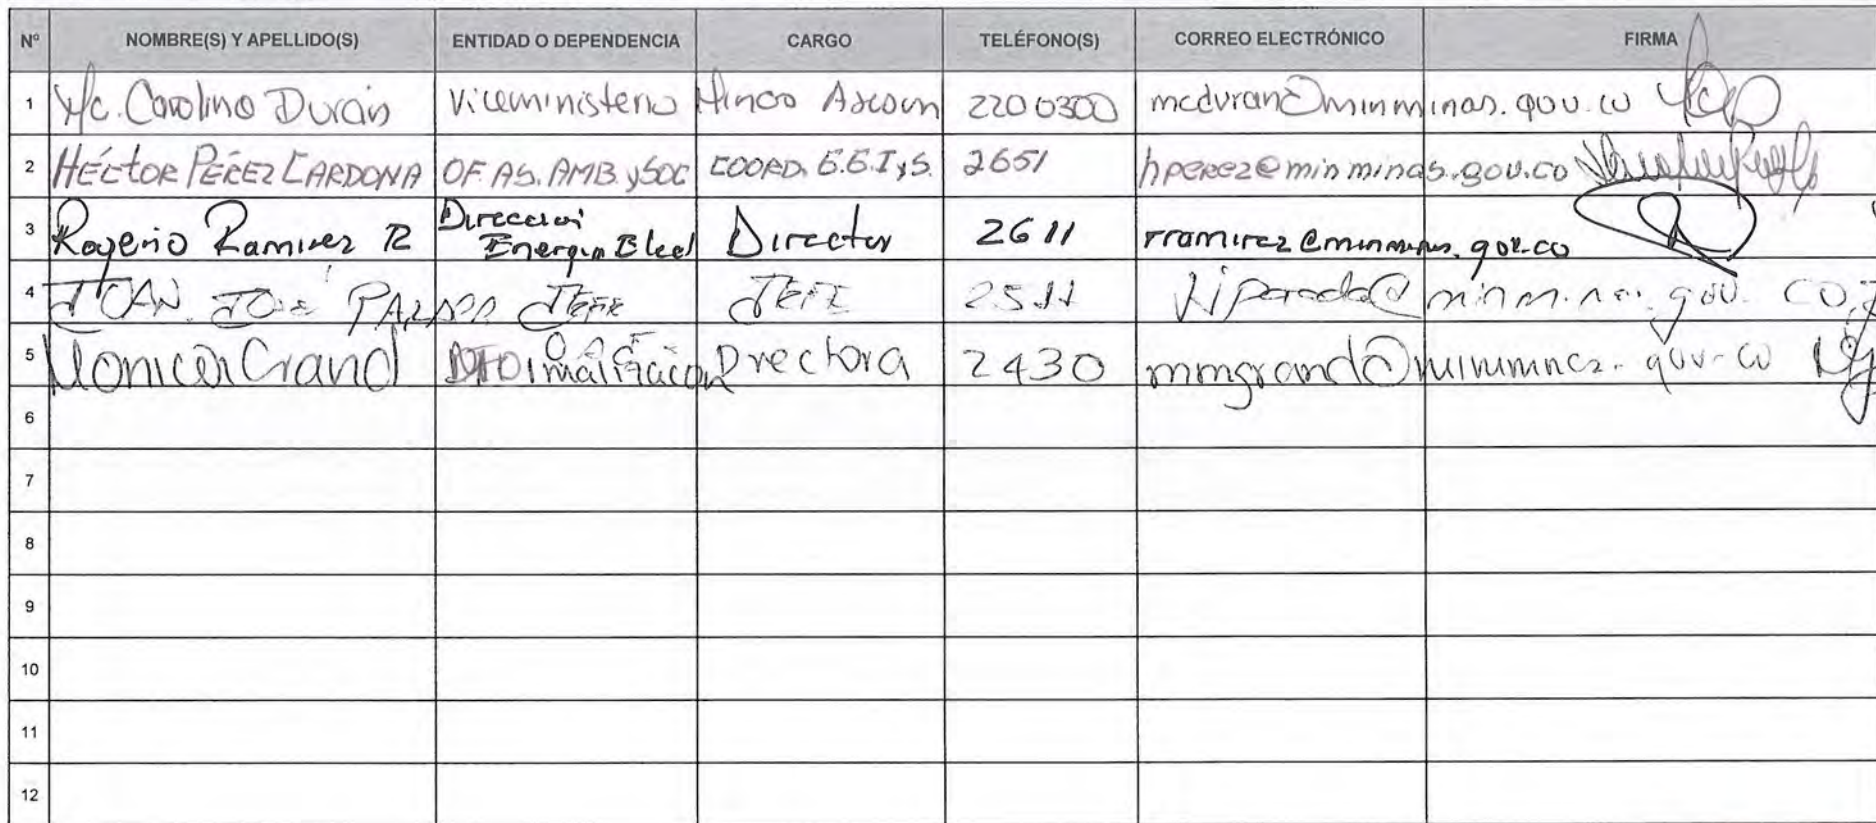 Nº NOMBRE(S) Y APELLIDO(S) ENTIDAD O DEPENDENCIA CARGO TELÉFONO(S) CORREO ELECTRÓNICO FIRMA
1 Carolina Durán Viceministerio 2200300 mcduran@minminas.gov.co
2 HÉCTOR PÉREZ CARDONA OF. AS. AMB. y SOC COORD. G.G.I y S. 2651 hperez@minminas.gov.co
3 Rogerio Ramirez R Dirección Energia Elect Director 2611 rramirez@minminas.gov.co
4 JUAN JOSE PARADA JEFE JEFE 2511
5 Monica Grand Directora 2430 mmgrand@minminas.gov.co
6
7
8
9
10
11
12